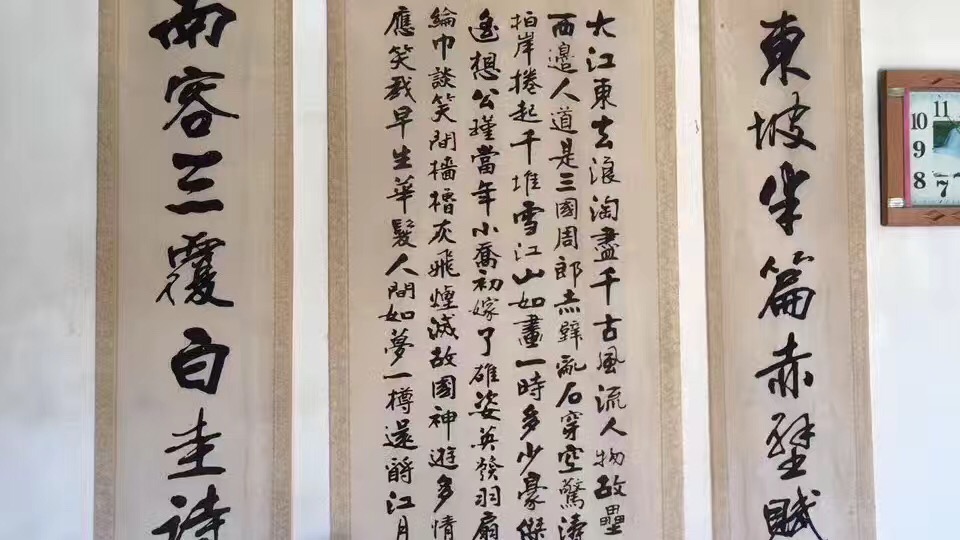 東坡半篇赤壁賦
大江東去浪淘盡千古風流人物故壘
西邊人道是三國周郎赤壁亂石穿空驚濤
拍岸捲起千堆雪江山如畫一時多少豪傑
遙想公瑾當年小喬初嫁了雄姿英發羽扇
綸巾談笑間檣櫓灰飛煙滅故國神遊多情
應笑我早生華髮人間如夢一樽還酹江月
南容三覆白圭詩
11
10
9
8
7